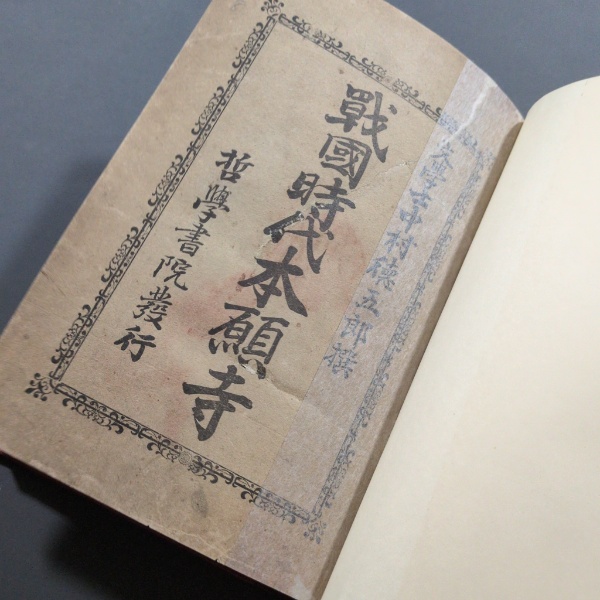 文學士中村德五郎撰
戰國時代本願寺
哲學書院發行